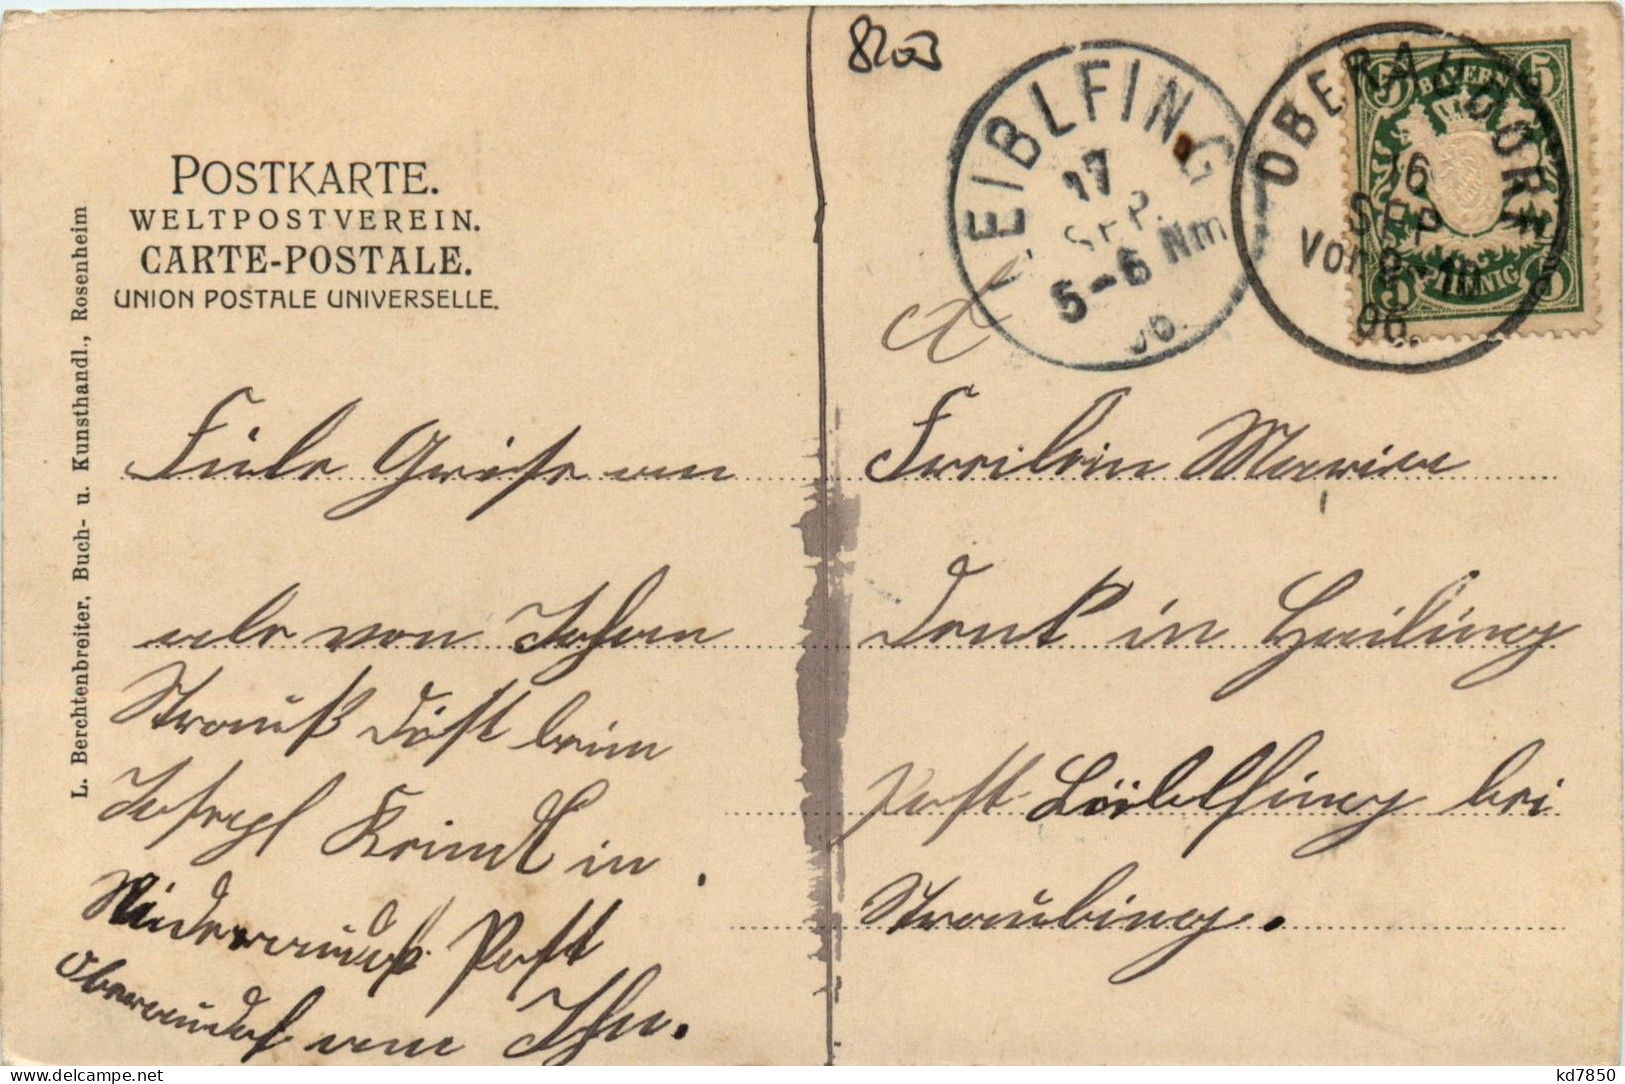 8203
POSTKARTE.
WELTPOSTVEREIN.
CARTE-POSTALE.
UNION POSTALE UNIVERSELLE.
L. Berchtenbreiter, Buch- u. Kunsthandl., Rosenheim
LEIBLFING
17
SEP.
5-6 Nm
06.
OBERAUDORF
16
SEP
Vor. 9-10
06.
BAYERN
5 5
5 5
PFENNIG
Fiele Griese an
ale von Johan
Strauß Döst beim
Joseph Krimt in
Niederaudof Post
Oberaudof am Ihn.
Freilein Maria
Dent in Hailing
Post Löiblfing bei
Straubing.
delcampe.net
kd7850